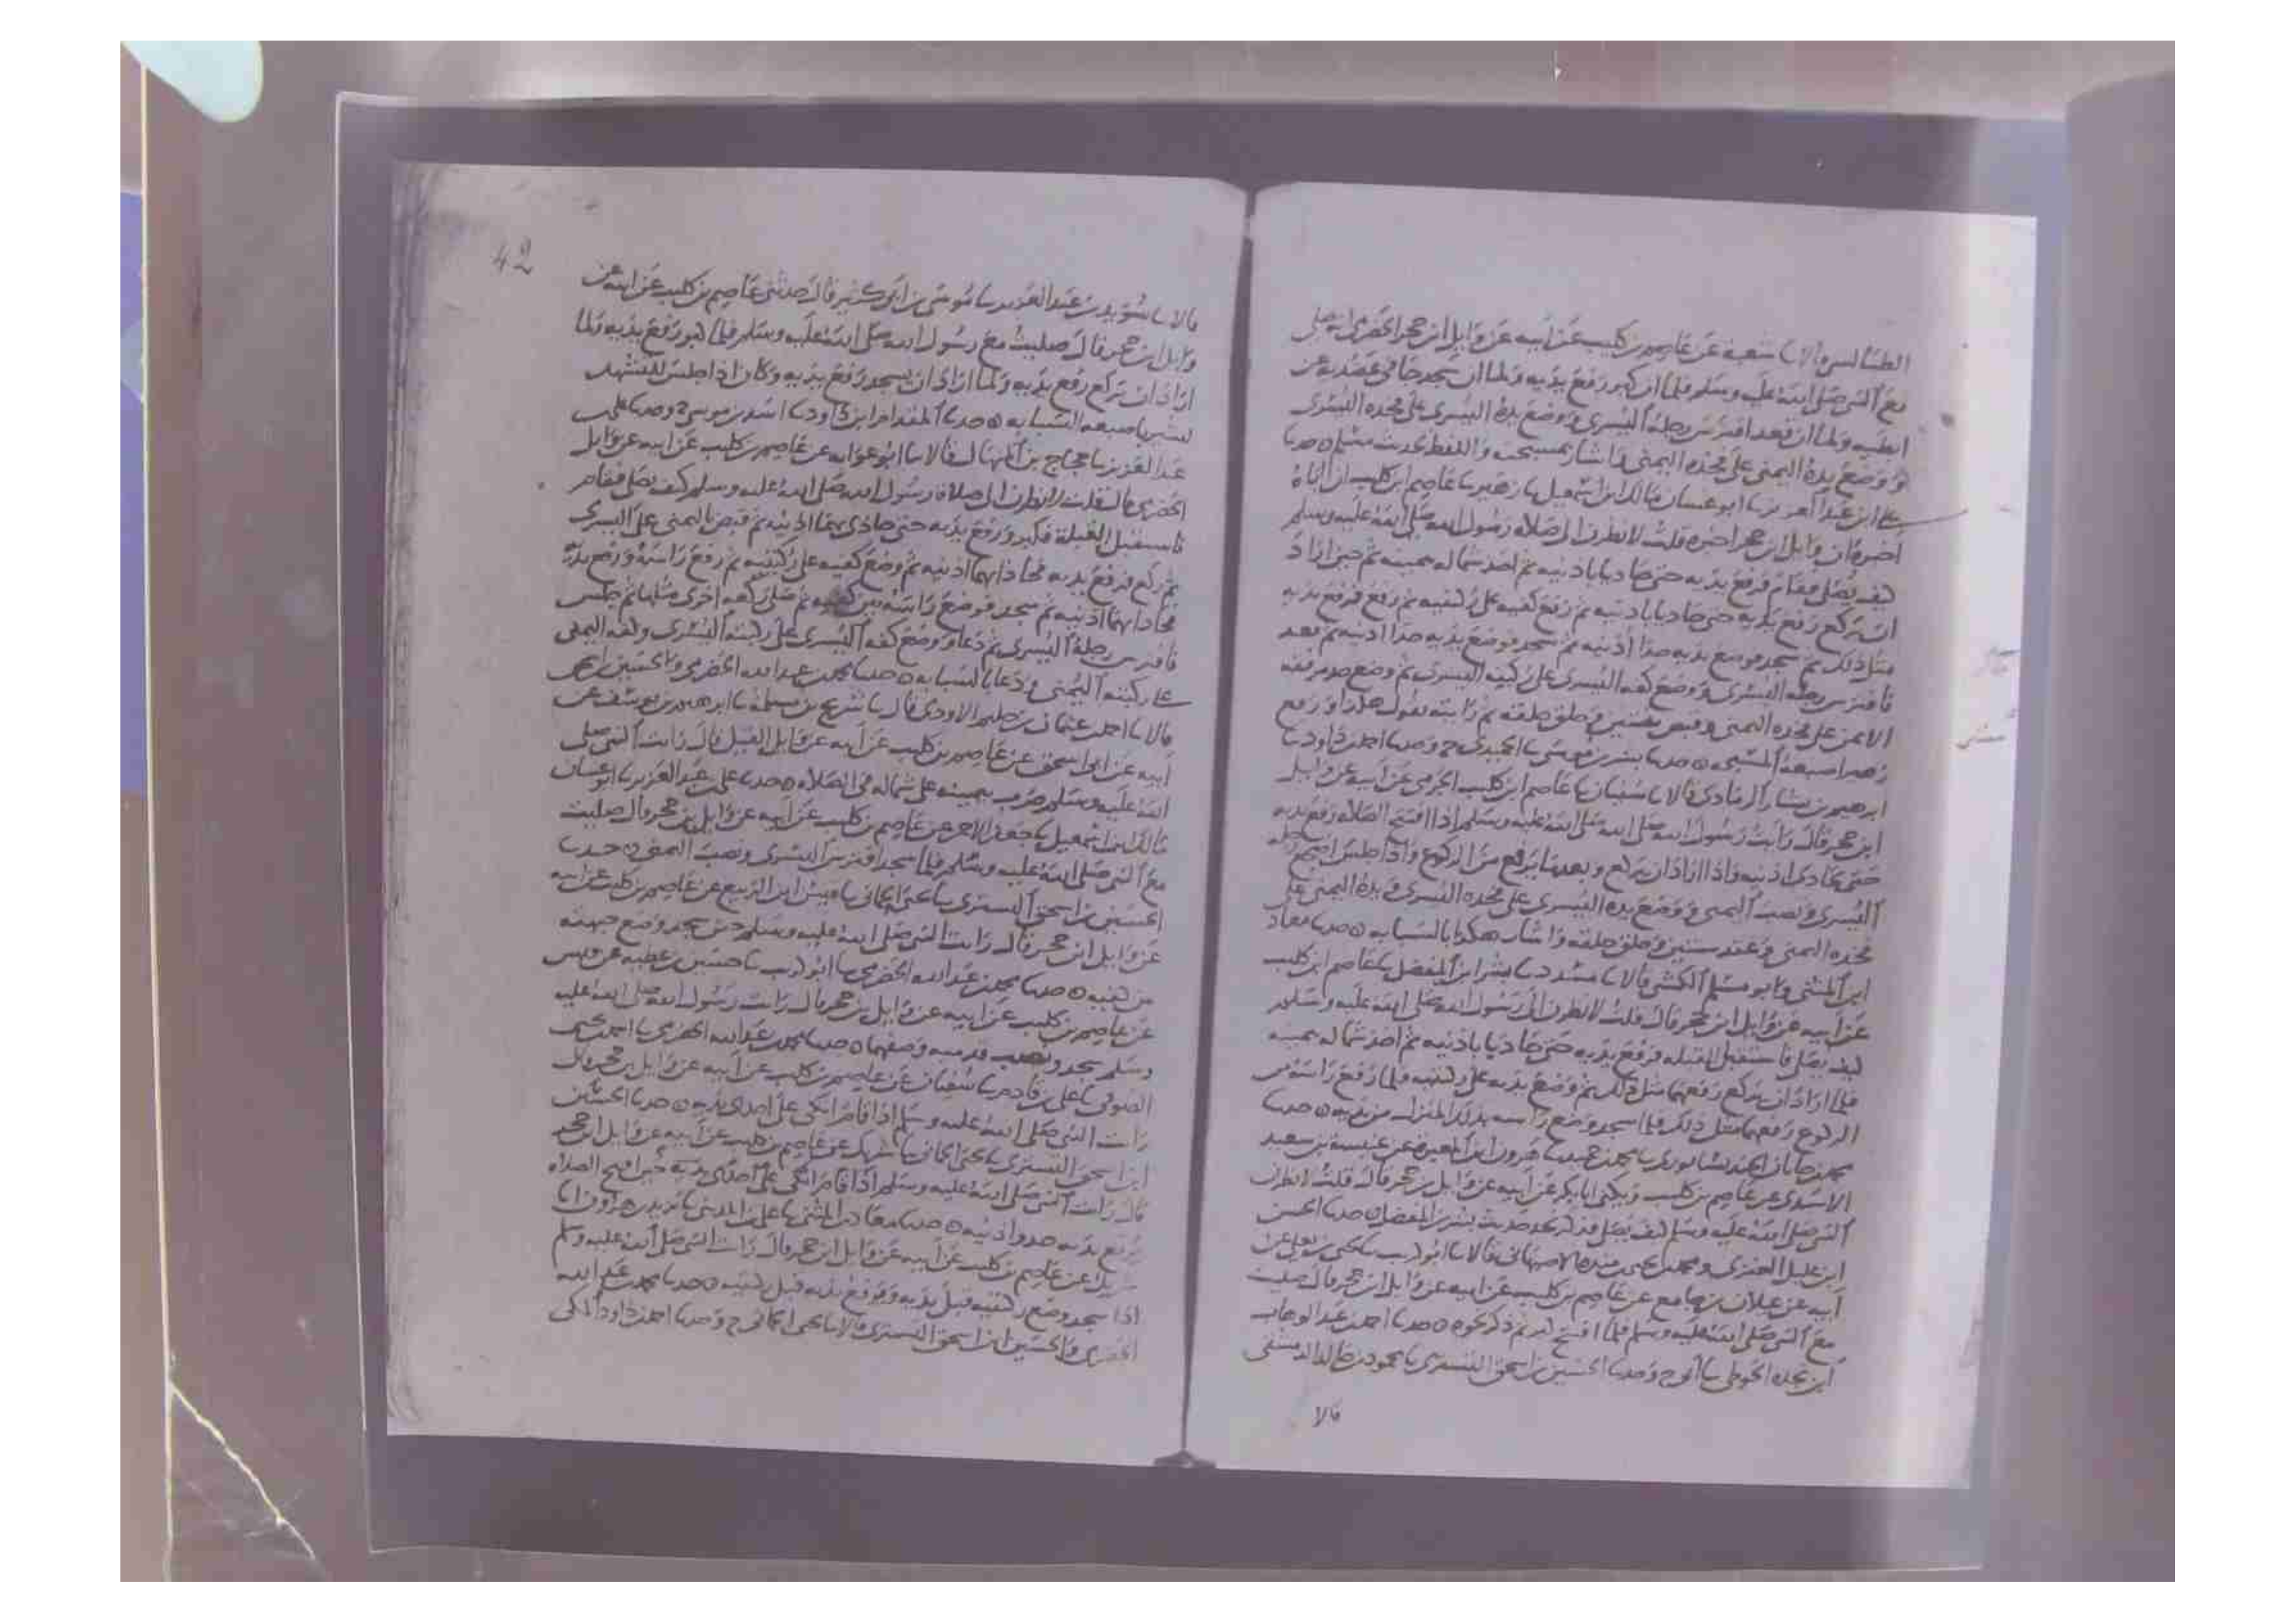 الطيالسي قالا نا شعبة عن عاصم بن كليب عن أبيه عن وايل ابن حجر الحضرمي انه صلى
مع النبي صلى الله عليه وسلم فلما ان كبر رفع يديه ولما ان سجد جافى عضديه عن
ابطيه ولما ان قعد افترش رجله اليسرى ووضع يده اليسرى على فخده اليسرى
ووضع يده اليمنى على فخذه اليمنى واشار بمسبحته واللفظ لحديث
علي ابن عبد العزيز نا ابو غسان مالك ابن اسمعيل نا زهير نا عاصم ابن كليب ان اباه
اخبره ان وايل ابن حجر اخبره قلت لانظرن الى صلاه رسول الله صلى الله عليه وسلم
كيف يصلي فقام فرفع يديه حتى حاديا باذنيه ثم اخذ شماله بيمينه ثم حين اراد
ان يركع رفع يديه حتى حاديا باذنيه ثم وضع كفيه على ركبتيه ثم رفع فرفع يديه
مثل ذلك ثم سجد فوضع يديه حذا اذنيه ثم سجد فوضع يديه حذا اذنيه ثم قعد
فافترش رجله اليسرى ووضع كفه اليسرى على ركبته اليسرى ثم وضع حد مرفقه
الايمن على فخذه اليمنى وقبض ثنتين وحلق حلقه ثم رايته يقول هكذا ورفع
زهير اصبعه المسبحه ۞ حدثنا بشر بن موسى نا الحميدي ح وحدثنا احمد بن داود نا
ابرهيم بن بشار الرمادي قالا نا سفيان نا عاصم ابن كليب الجرمي عن أبيه عن وايل
ابن حجر قال رايت رسول الله صلى الله عليه وسلم اذا افتتح الصلاه رفع يديه
حتى يحادي اذنيه واذا اراد ان يركع وبعدما يرفع من الركوع واذا جلس اضجع رجله
اليسرى ونصب اليمنى ووضع يده اليسرى على فخده اليسرى ويده اليمنى على
فخذه اليمنى وعقد ثنتين وحلق حلقه واشار هكذا بالسبابه ۞ حدثنا معاذ
ابن المثنى وابو مسلم الكشي قالا نا مسدد نا بشر ابن المفضل نا عاصم ابن كليب
عن أبيه عن وايل ابن حجر قال قلت لانظرن الى رسول الله صلى الله عليه وسلم
كيف يصلي فاستقبل القبله فرفع يديه حتى حاديا باذنيه ثم اخذ شماله بيمينه
فلما اراد ان يركع رفعهما مثل ذلك ثم وضع يديه على ركبتيه فلما رفع راسه من
الركوع رفعهما مثل ذلك فلما سجد وضع راسه بذلك المنزل من يديه ۞ حدثنا
محمد بن حيان نا هرون ابن المغيره عن عنبسة بن سعيد
الاسدي عن عاصم بن كليب عن أبيه عن وايل بن حجر قال قلت لانظرن
النبي صلى الله عليه وسلم كيف يصلي فذكر نحو حديث بشر بن المفضل ۞ حدثنا الحسن
ابن عليل العنزي ومحمد بن يحيى بن منده الاصبهاني قالا نا ابو كريب نا يحيى بن يعلى عن
أبيه عن غيلان بن جامع عن عاصم بن كليب عن ابيه عن وايل ابن حجر قال صليت
مع النبي صلى الله عليه وسلم فلما افتتح كبر ثم ذكر نحوه ۞ حدثنا احمد بن عبد الوهاب
ابن نجده الحوطي نا أبي ح وحدثنا الحسين بن اسحق التستري نا محمود بن خالد الدمشقي
قالا
42
قالا نا سويد بن عبد العزيز نا موسى بن ابي كثير قال حدثني عاصم بن كليب عن ابيه عن
وايل ابن حجر قال صليت مع رسول الله صلى الله عليه وسلم فلما كبر رفع يديه ولما
اراد ان يركع رفع يديه ولما اراد ان يسجد رفع يديه وكان اذا جلس للتشهد
يشير باصبعه السبابه ۞ حدثنا المقدام ابن داود نا اسد بن موسى ح وحدثنا علي بن
عبد العزيز نا حجاج بن المنهال قالا نا ابو عوانه عن عاصم بن كليب عن أبيه عن وايل
الحضرمي قال قلت لانظرن الى صلاة رسول الله صلى الله عليه وسلم كيف يصلي فقام
فاستقبل القبلة فكبر ورفع يديه حتى حاذى بهما اذنيه ثم قبض باليمنى على اليسرى
ثم ركع فرفع يديه فحاذا بهما اذنيه ثم وضع كفيه على ركبتيه ثم رفع راسه ورفع يديه
فحاذا بهما اذنيه ثم سجد فوضع راسه بين كفيه ثم صلى ركعه اخرى مثلها ثم جلس
فافترش رجله اليسرى ثم دعا ووضع كفه اليسرى على ركبته اليسرى وكفه اليمنى
على ركبته اليمنى ودعا بالسبابه ۞ حدثنا محمد بن عبد الله الحضرمي والحسين بن اسحق
قالا نا احمد بن عثمان بن حكيم الاودي قال نا شريح بن مسلمة نا ابرهيم بن يوسف عن
أبيه عن ابي اسحق عن عاصم بن كليب عن أبيه عن وايل القيل قال رايت النبي صلى
الله عليه وسلم ضرب بيمينه على شماله في الصلاه ۞ حدثنا علي بن عبد العزيز نا ابو غسان
مالك ابن اسمعيل نا جعفر الاحمر عن عاصم بن كليب عن أبيه عن وايل بن حجر قال صليت
مع النبي صلى الله عليه وسلم فلما سجد افترش اليسرى ونصب اليمنى ۞ حدثنا
الحسين بن اسحق التستري نا يحيى الحماني نا قيس ابن الربيع عن عاصم بن كليب عن ابيه
عن وايل ابن حجر قال رايت النبي صلى الله عليه وسلم حين سجد وضع جبهته
بين كفيه ۞ حدثنا محمد بن عبد الله الحضرمي نا ابو كريب نا حسين بن عطيه عن قيس
عن عاصم بن كليب عن أبيه عن وايل بن حجر قال رايت رسول الله صلى الله عليه
وسلم سجد ۞ حدثنا محمد بن عبد الله الحضرمي نا احمد بن يحيى
الصوفي نا علي بن قادم نا سفيان عن عاصم بن كليب عن أبيه عن وايل بن حجر قال
رايت النبي صلى الله عليه وسلم اذا قام اتكى على احدى يديه ۞ حدثنا الحسين
ابن اسحق التستري نا يحيى الحماني نا شريك عن عاصم بن كليب عن أبيه عن وايل ابن حجر
قال رايت النبي صلى الله عليه وسلم اذا قام اتكى على احدى يديه حين افتتح الصلاه
يرفع يديه حذو اذنيه ۞ حدثنا معاذ بن المثنى نا علي بن المديني نا يزيد بن هارون انا
شريك عن عاصم بن كليب عن أبيه عن وايل ابن حجر قال رايت النبي صلى الله عليه وسلم
اذا سجد وضع ركبتيه قبل يديه ويرفع يديه قبل ركبتيه ۞ حدثنا محمد بن عبد الله
الحضرمي والحسين ابن اسحق التستري قالا نا يحيى الحماني ح وحدثنا احمد بن داود المكي